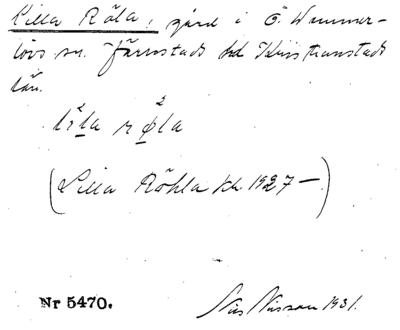 Lilla Röla, gård i Ö. Wemmer-
lövs sn. Järrestads hd Kristianstads
län.
li²la rø²la
(Lilla Röhla kh 1927 —)
Nr 5470.
Nils Nilsson 1931.